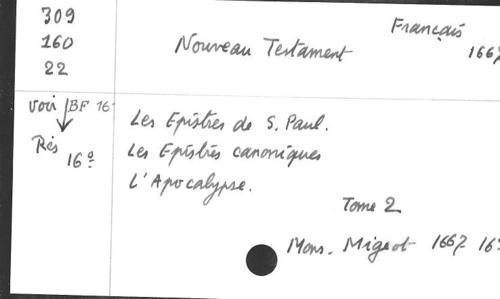 309
160
22
Nouveau Testament
Français
1667
voir BF 16
Rés
16º
Les Epistres de S. Paul.
Les Epistres canoniques
L'Apocalypse.
Tome 2
Mons. Migeot 1667 16º